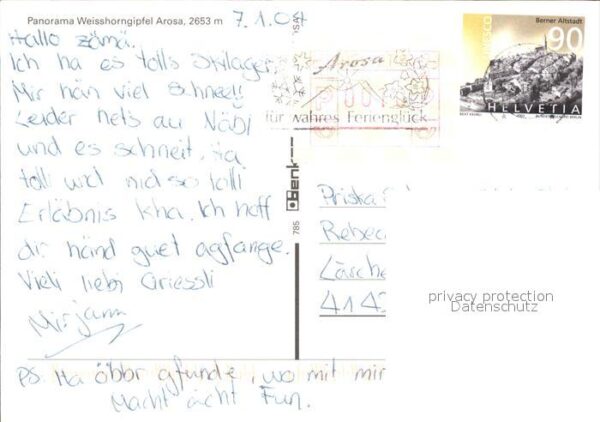 Panorama Weisshorngipfel Arosa, 2653 m
7.1.04
Hallo zämä.
Ich ha es tolls Skilager.
Mir hän viel Schnee!!
Leider hets au Näbl
und es schneit, ha
tolli und nid so tolli
Erläbnis kha. Ich hoff
dir händ guet agfange.
Vieli liebi Griessli
Mirjam
PS. Ha öbbr gfunde, wo mit mir
Macht ächt Fun.
Arosa
für wahres Ferienglück
Berner Altstadt
UNESCO
90
HELVETIA
Benk
785
Priska
Rebec
Lärche
414
privacy protection
Datenschutz